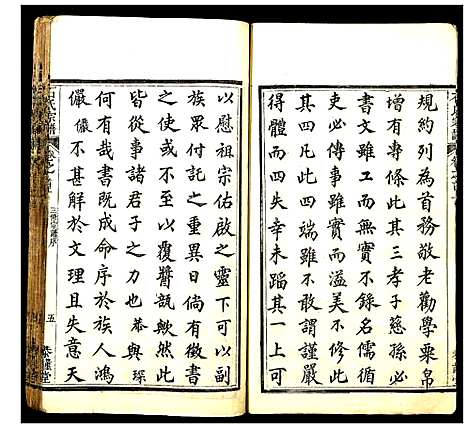 規約列為首務敬老勸學粟帛
增有專條此其三孝子慈孫必
書文雖工而無實不錄名儒循
吏必傳事雖實而溢美不修此
其四凡此四端雖不敢謂謹嚴
得體而四失幸未蹈其一上可
以慰祖宗佑啟之靈下可以副
族眾付託之重異日倘有徵收
之使或不至以覆醬瓿歟然此
皆從事諸君子之力也恭與琛
何有哉書既成命序於族人鴻
儼儼不甚解於文理且失意天
氏宗譜
卷之首
三修宗譜序
五